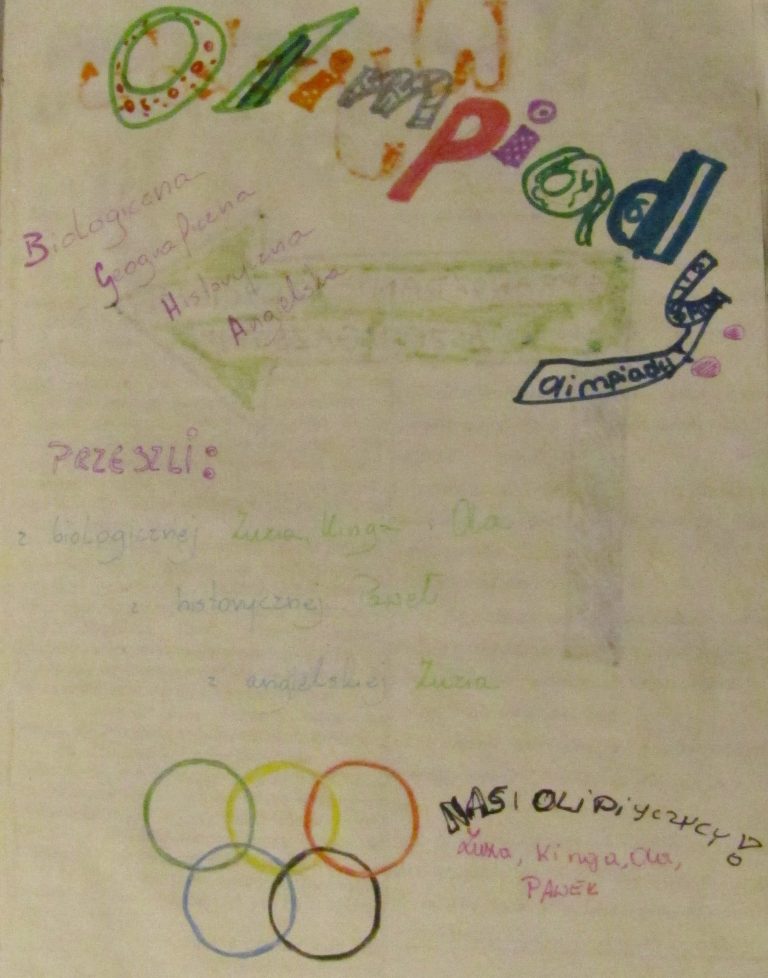 Olimpiady
olimpiady
Biologiczna
Geograficzna
Historyczna
Angelska
PRZESZLi:
z biologicznej Zuzia, Kinga i Ola
z historycznej Paweł
z angielskiej Zuzia
NASI OLiPiYCZYCY!
Zuzia, Kinga, Ola,
PAWEŁ